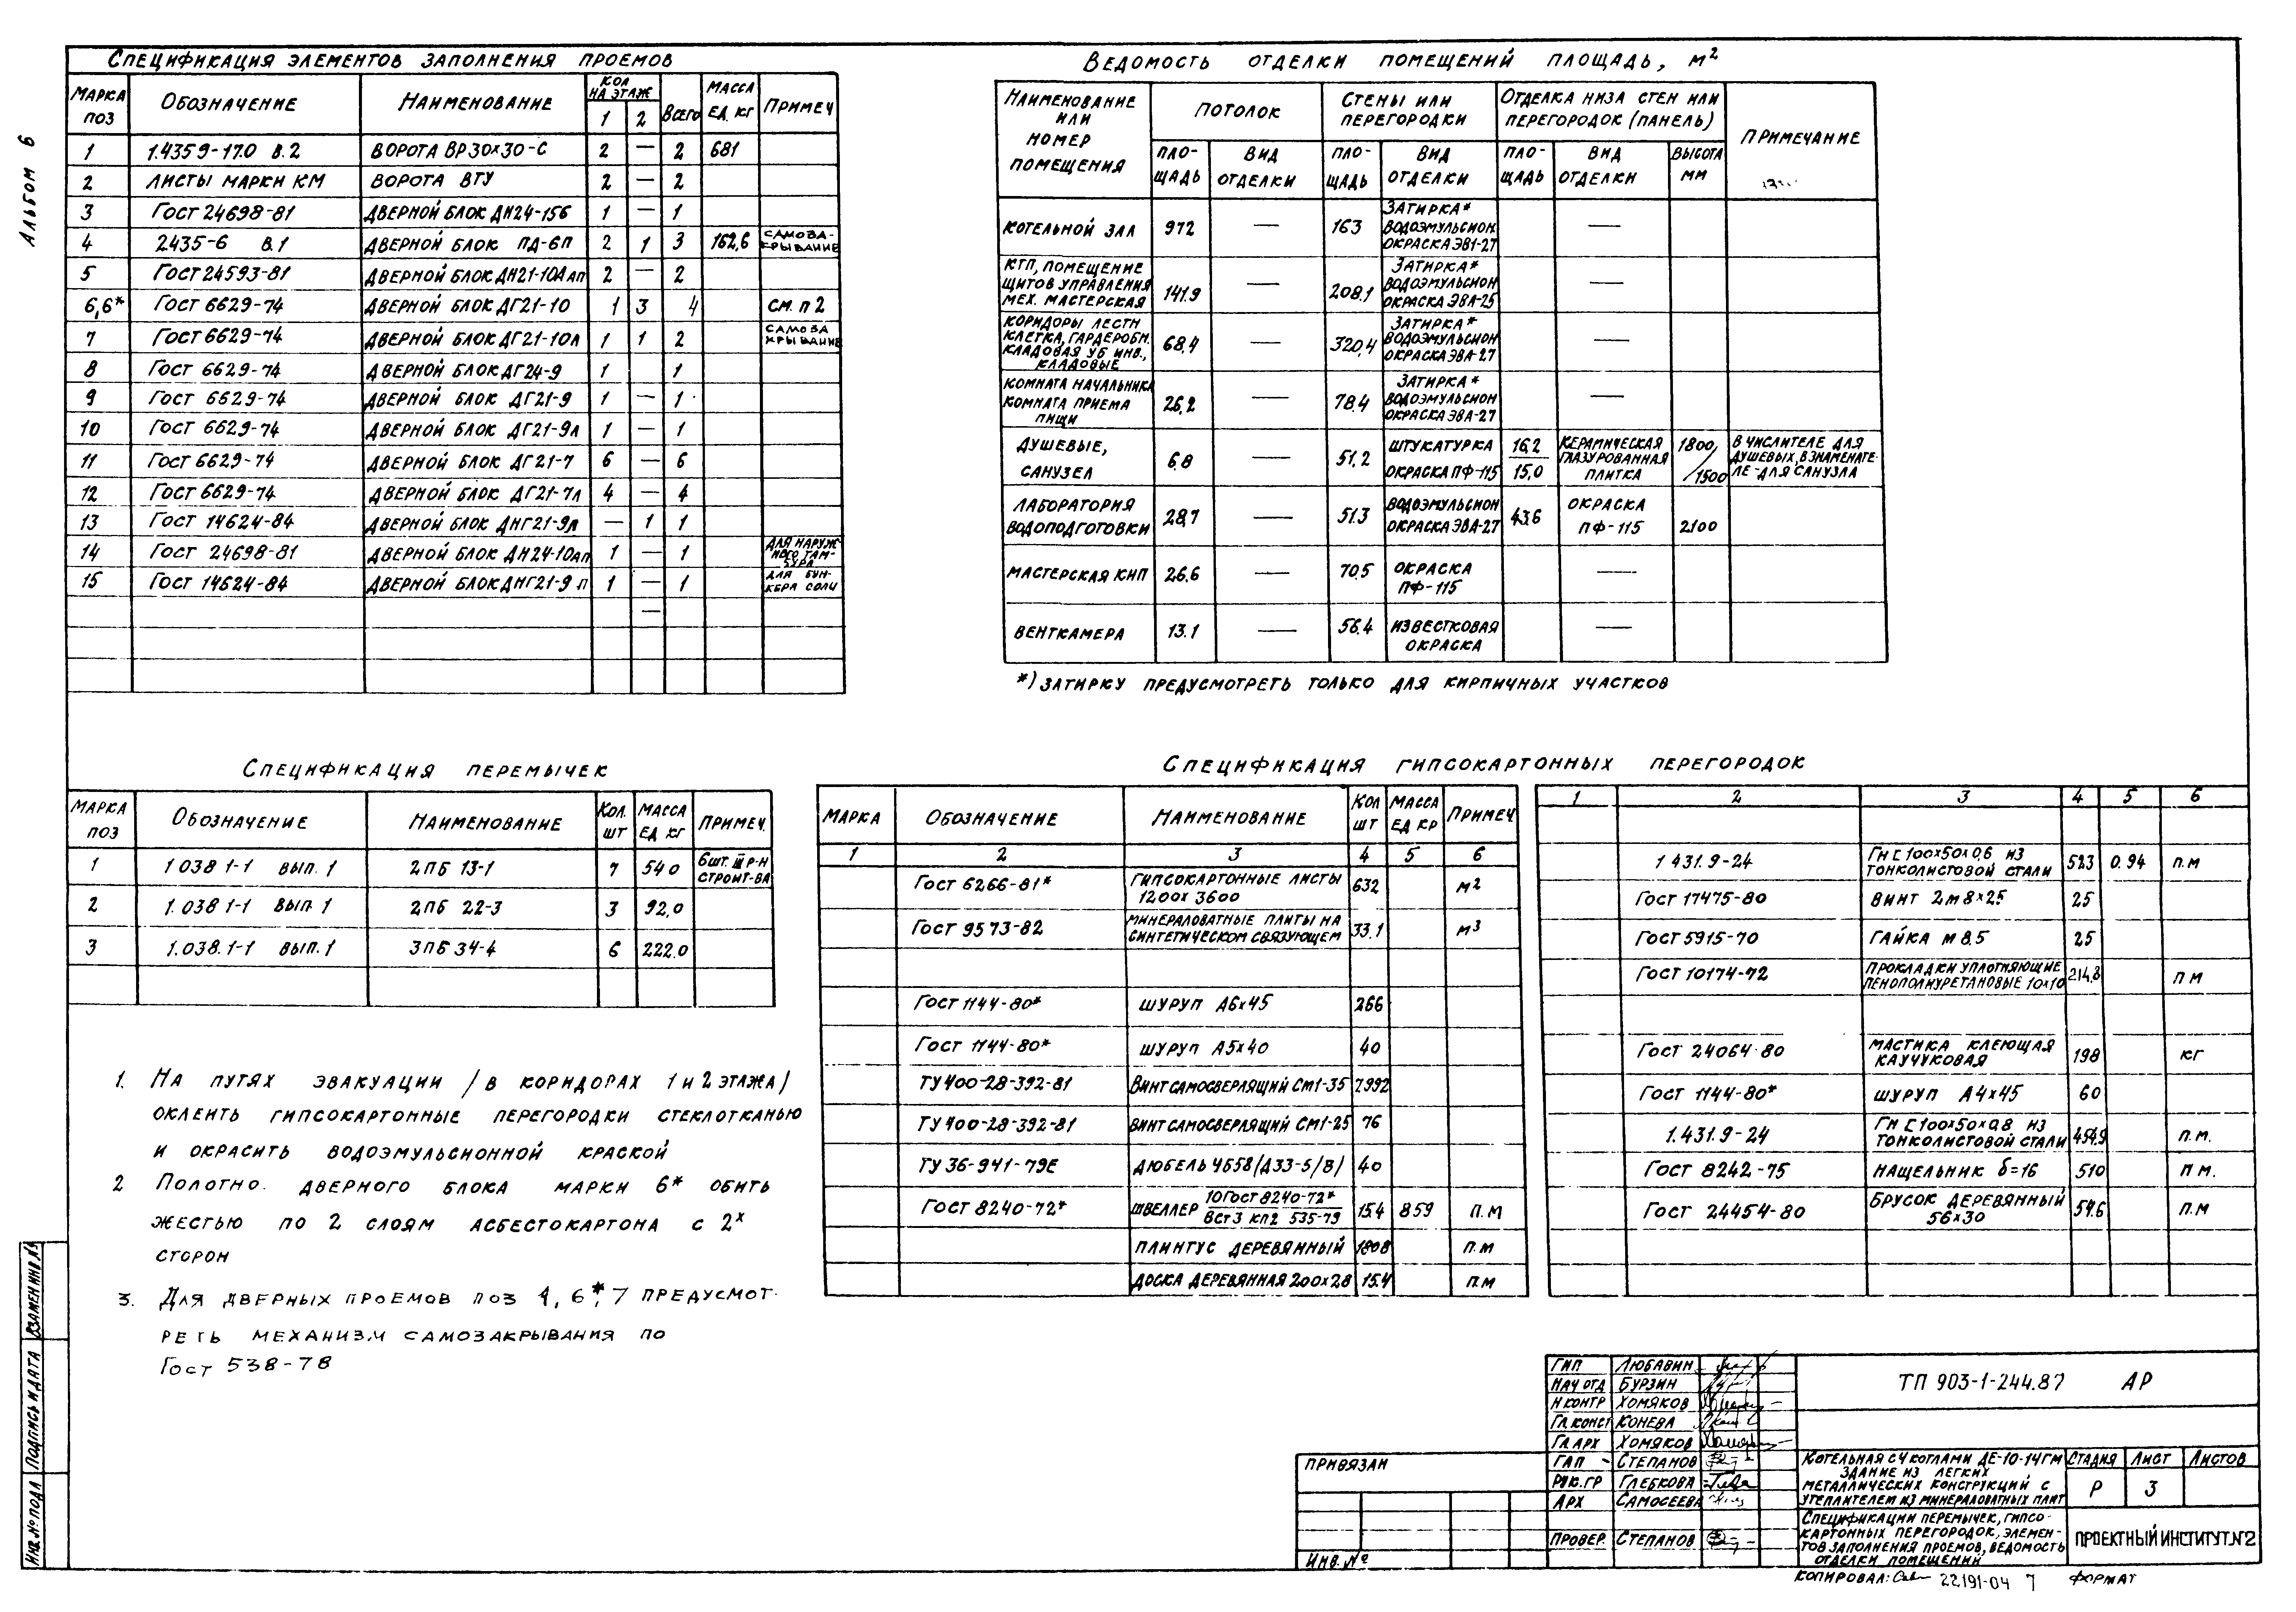 Альбом 6
Спецификация элементов заполнения проемов
Марка поз | Обозначение | Наименование | Кол на этаж 1 | 2 | Всего | Масса ед. кг | Примеч
1 | 1.435 9-17.0 в.2 | Ворота ВР 30х30-С | 2 | — | 2 | 681
2 | Листы марки КМ | Ворота ВТУ | 2 | — | 2
3 | Гост 24698-81 | Дверной блок ДН24-15б | 1 | — | 1
4 | 2435-6 в.1 | Дверной блок ПД-6П | 2 | 1 | 3 | 162,6 | Самоза-крывание
5 | Гост 24593-81 | Дверной блок ДН21-10Ап | 2 | — | 2
6,6* | Гост 6629-74 | Дверной блок ДГ21-10 | 1 | 3 | 4 | См. п 2
7 | Гост 6629-74 | Дверной блок ДГ21-10л | 1 | 1 | 2 | Самоза крывание
8 | Гост 6629-74 | Дверной блок ДГ24-9 | 1 | 1
9 | Гост 6629-74 | Дверной блок ДГ21-9 | 1 | — | 1
10 | Гост 6629-74 | Дверной блок ДГ21-9л | 1 | — | 1
11 | Гост 6629-74 | Дверной блок ДГ21-7 | 6 | — | 6
12 | Гост 6629-74 | Дверной блок ДГ21-7л | 4 | — | 4
13 | Гост 14624-84 | Дверной блок ДНГ21-9л | — | 1 | 1
14 | Гост 24698-81 | Дверной блок ДН24-10ап | 1 | — | 1 | Для наруж-ного там-бура
15 | Гост 14624-84 | Дверной блок ДНГ21-9 п | 1 | — | 1 | Для бун-кера соли
—
Ведомость отделки помещений площадь, м²
Наименование или номер помещения | Потолок | Стены или перегородки | Отделка низа стен или перегородок (панель) | Примечание
Пло-щадь | Вид отделки | Пло-щадь | Вид отделки | Пло-щадь | Вид отделки | Высота мм
Котельной зал | 972 | — | 163 | Затирка* водоэмульсион окраска ЭВ1-27 | —
КТП, помещение щитов управления мех. мастерская | 141.9 | — | 208.1 | Затирка* водоэмульсион окраска ЭВА-25 | —
Коридоры лестн клетка, гардеробн. кладовая уб инв., кладовые | 68.4 | — | 320,4 | Затирка* водоэмульсион окраска ЭВА-27 | —
Комната начальника комната приема пищи | 26,2 | — | 78.4 | Затирка* водоэмульсион окраска ЭВА-27 | —
Душевые, санузел | 6.8 | — | 51,2 | Штукатурка окраска ПФ-115 | 16,2/15,0 | Керамическая глазурованная плитка | 1800/1500 | В числителе для душевых, в знаменате-ле-для санузла
Лаборатория водоподготовки | 28,7 | — | 51.3 | Водоэмульсион окраска ЭВА-27 | 43.6 | Окраска ПФ-115 | 2100
Мастерская КИП | 26.6 | — | 70.5 | Окраска ПФ-115 | —
Венткамера | 13.1 | — | 56.4 | Известковая окраска | —
*) Затирку предусмотреть только для кирпичных участков
Спецификация перемычек
Марка поз | Обозначение | Наименование | Кол. шт | Масса ед кг | Примеч.
1 | 1 038 1-1 вып. 1 | 2ПБ 13-1 | 7 | 54 0 | 6шт. III р-н строит-ва
2 | 1. 038 1-1 вып. 1 | 2ПБ 22-3 | 3 | 92,0
3 | 1.038.1-1 вып. 1 | 3ПБ 34-4 | 6 | 222.0
Спецификация гипсокартонных перегородок
Марка | Обозначение | Наименование | Кол шт | Масса ед кр | Примеч
1 | 2 | 3 | 4 | 5 | 6
Гост 6266-81* | Гипсокартонные листы 1200х 3600 | 632 | м²
Гост 9573-82 | Минераловатные плиты на синтетическом связующем | 33.1 | м³
Гост 1144-80* | Шуруп А6х45 | 266
Гост 1144-80* | Шуруп А5х40 | 40
ТУ 400-28-392-81 | Винт самосверлящий СМ1-35 | 7992
ТУ 400-28-392-81 | Винт самосверлящий СМ1-25 | 76
ТУ 36-941-79Е | Дюбель 4658/Д33-5/8/ | 40
Гост 8240-72* | Швеллер 10 Гост 8240-72* / Вст3 кп2 535-79 | 15.4 | 8 59 | п.м
Плинтус деревянный | 180.8 | п.м
Доска деревянная 200х28 | 15.4 | п.м
1 | 2 | 3 | 4 | 5 | 6
1 431.9-24 | Гн [ 100х50х0,6 из тонколистовой стали | 523 | 0.94 | п.м
Гост 17475-80 | Винт 2м 8х25 | 25
Гост 5915-70 | Гайка м 8.5 | 25
Гост 10174-72 | Прокладки уплотняющие пенополиуретановые 10х10 | 214,8 | п м
Гост 24064-80 | Мастика клеющая каучуковая | 198 | кг
Гост 1144-80* | Шуруп А4х45 | 60
1.431.9-24 | Гн [ 100х50х0,8 из тонколистовой стали | 454.9 | п.м.
Гост 8242-75 | Нащельник δ=16 | 510 | п м.
Гост 24454-80 | Брусок деревянный 56х30 | 54.6 | п.м
1. На путях эвакуации /в коридорах 1 и 2 этажа/
оклеить гипсокартонные перегородки стеклотканью
и окрасить водоэмульсионной краской
2 Полотно. дверного блока марки 6* обить
жестью по 2 слоям асбестокартона с 2х
сторон
3. Для дверных проемов поз 4, 6*, 7 предусмот-
реть механизм самозакрывания по
Гост 538-78
Инв. № подл | Подпись и дата | Взамен инв. №
Привязан
Инв. №
ГИП Любавин
Нач отд Бурзин
Н контр Хомяков
Гл. конст Конева
Гл арх Хомяков
ГАП Степанов
Рук. гр Глебкова
Арх Самосеева
Провер. Степанов
ТП 903-1-244.87 АР
Котельная с 4 котлами ДЕ-10-14ГМ
здание из легких
металлических конструкций с
утеплителем из минераловатных плит
Стадия | Лист | Листов
Р | 3
Спецификации перемычек, гипсо-
картонных перегородок, элемен-
тов заполнения проемов, ведомость
отделки помещений
Проектный институт №2
Копировал: 22191-04 7 Формат